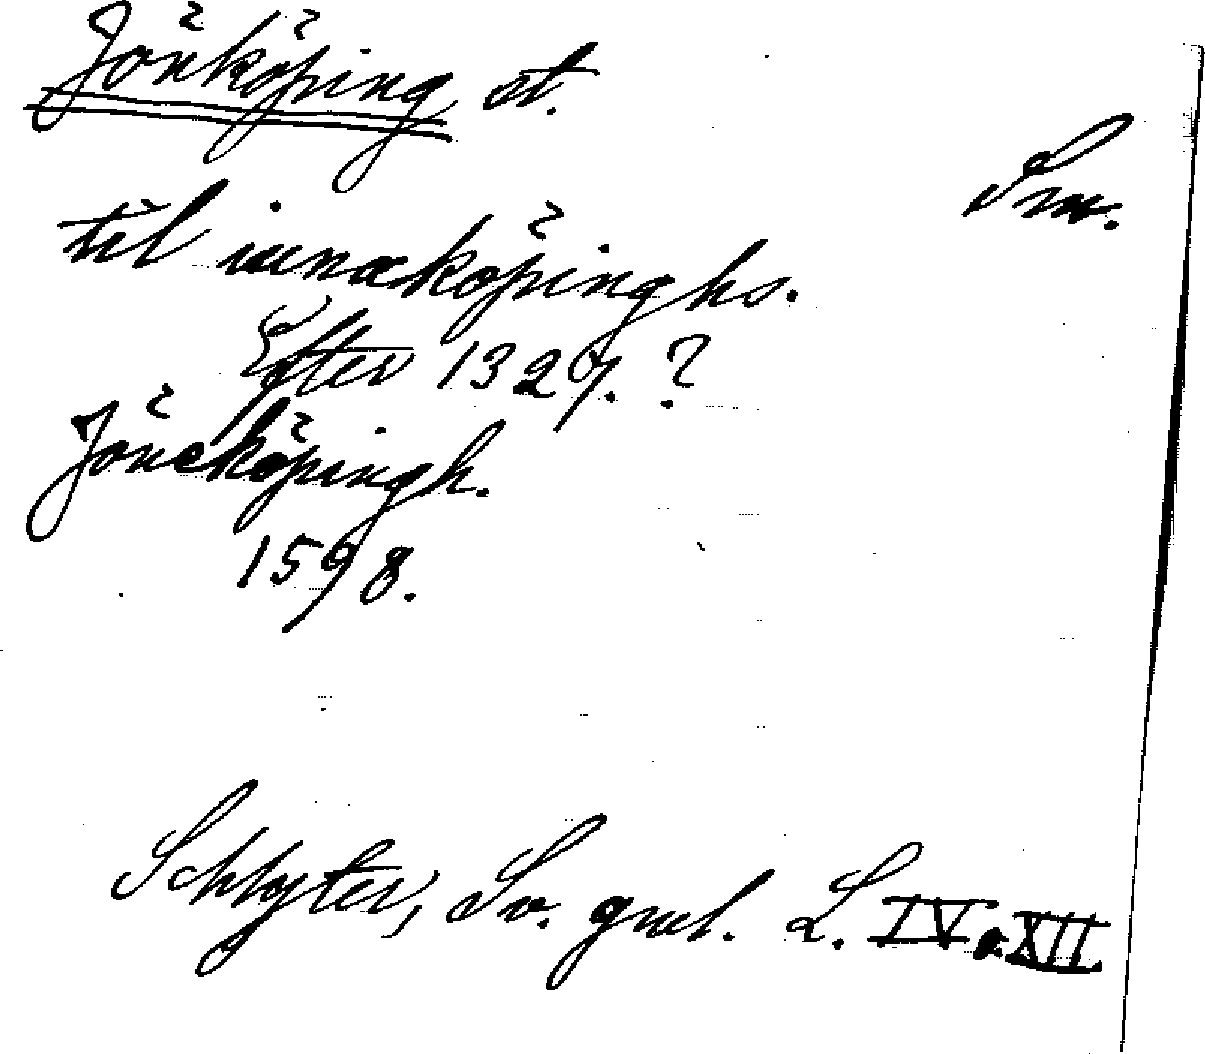 Jönköping st.
Sm.
til iunaköpinghs.
Efter 1327.?
Jöneköpingh.
1598.
Schlyter, Sv. gml. L. IV o XII